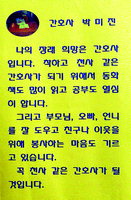 간호사 박 미 진
나의 장래 희망은 간호사
입니다. 착하고 천사 같은
간호사가 되기 위해서 동화
책도 많이 읽고 공부도 열심
히 합니다.
그리고 부모님, 오빠, 언니
를 잘 도우고 친구나 이웃을
위해 봉사하는 마음도 기르
고 있습니다.
꼭 천사 같은 간호사가 될
것입니다.